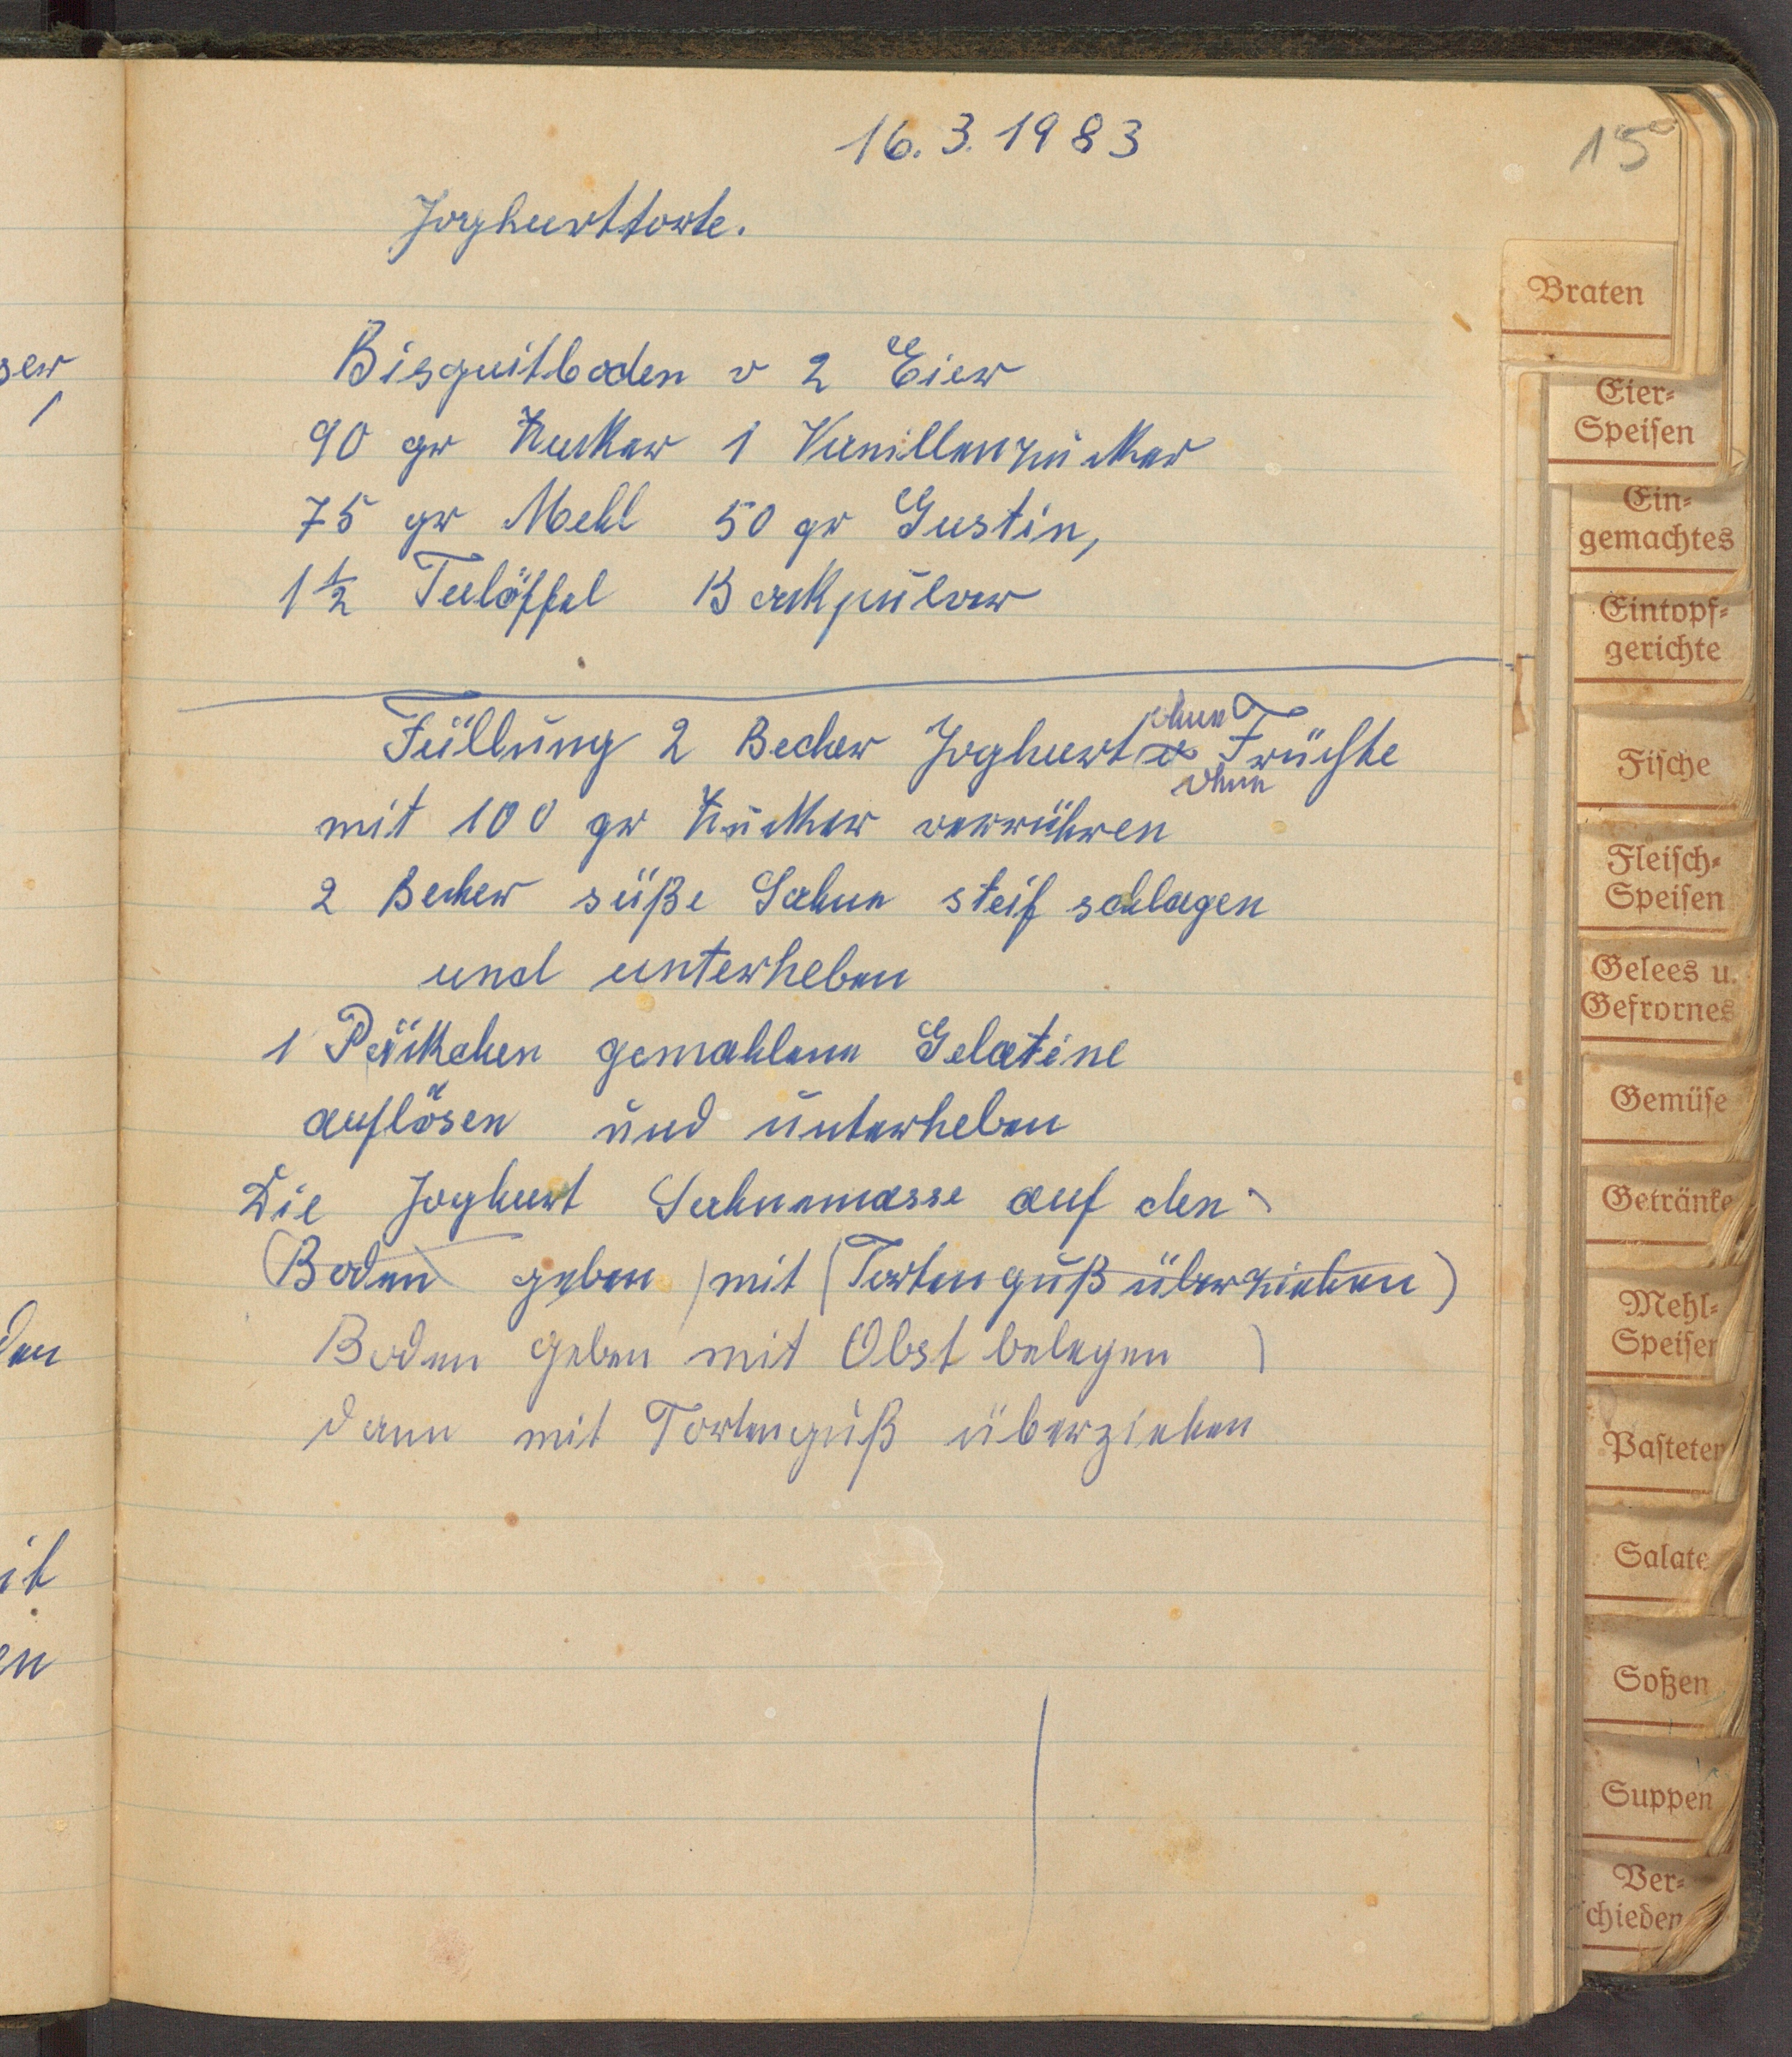 16.3.1983
15
Joghurttorte.
Bisquitboden v 2 Eier
90 gr Zucker 1 Vanillenzucker
75 gr Mehl 50 gr Gustin,
1 1/2 Teelöffel Backpulver
ohne
Füllung 2 Becher Joghurt Früchte
ohne
mit 100 gr Zucker verrühren
2 Becher süße Sahne steif schlagen
und unterheben
1 Päckchen gemahlene Gelatine
auflösen und unterheben
Die Joghurt Sahnemasse auf den
(Boden geben) mit (Tortenguß überziehen)
Boden geben mit Obst belegen )
dann mit Tortenguß überziehen
Braten
Eier=
Speisen
Ein=
gemachtes
Eintopf=
gerichte
Fische
Fleisch=
Speisen
Gelees u.
Gefrornes
Gemüse
Getränke
Mehl=
Speisen
Pasteten
Salate
Soßen
Suppen
Ver=
schieden